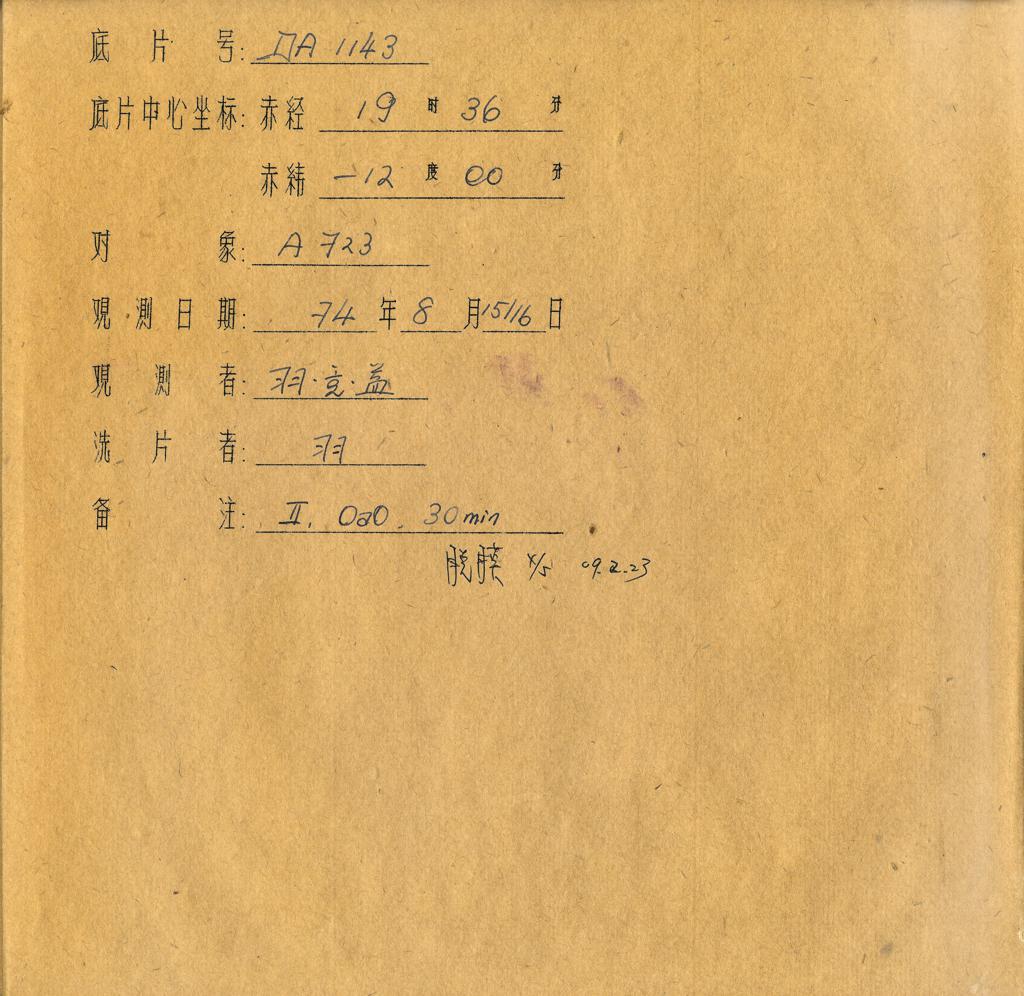 底片号: DA 1143
底片中心坐标: 赤经 19 时 36 分
赤纬 -12 度 00 分
对象: A 723
观测日期: 74 年 8 月 15/16 日
观测者: 羽·竞·益
洗片者: 羽
备注: II. OaO. 30 min
脱膜 09.2.23